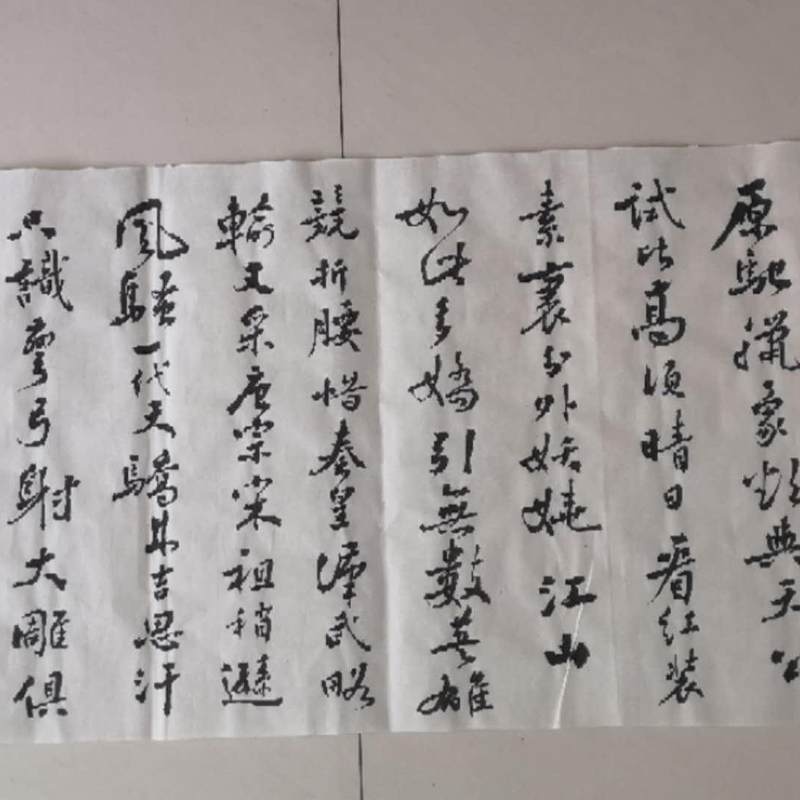 原馳獵象欲與天公
試比高須晴日看紅裝
素裹分外妖嬈江山
如此多嬌引無數英雄
競折腰惜秦皇漢武略
輸文采唐宗宋祖稍遜
風騷一代天驕成吉思汗
只識彎弓射大雕俱